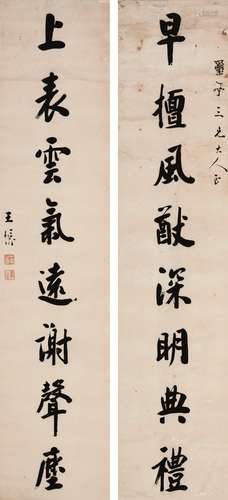 三兄大人正
早擅風猷深明典禮
上表雲氣遠謝聲塵
王